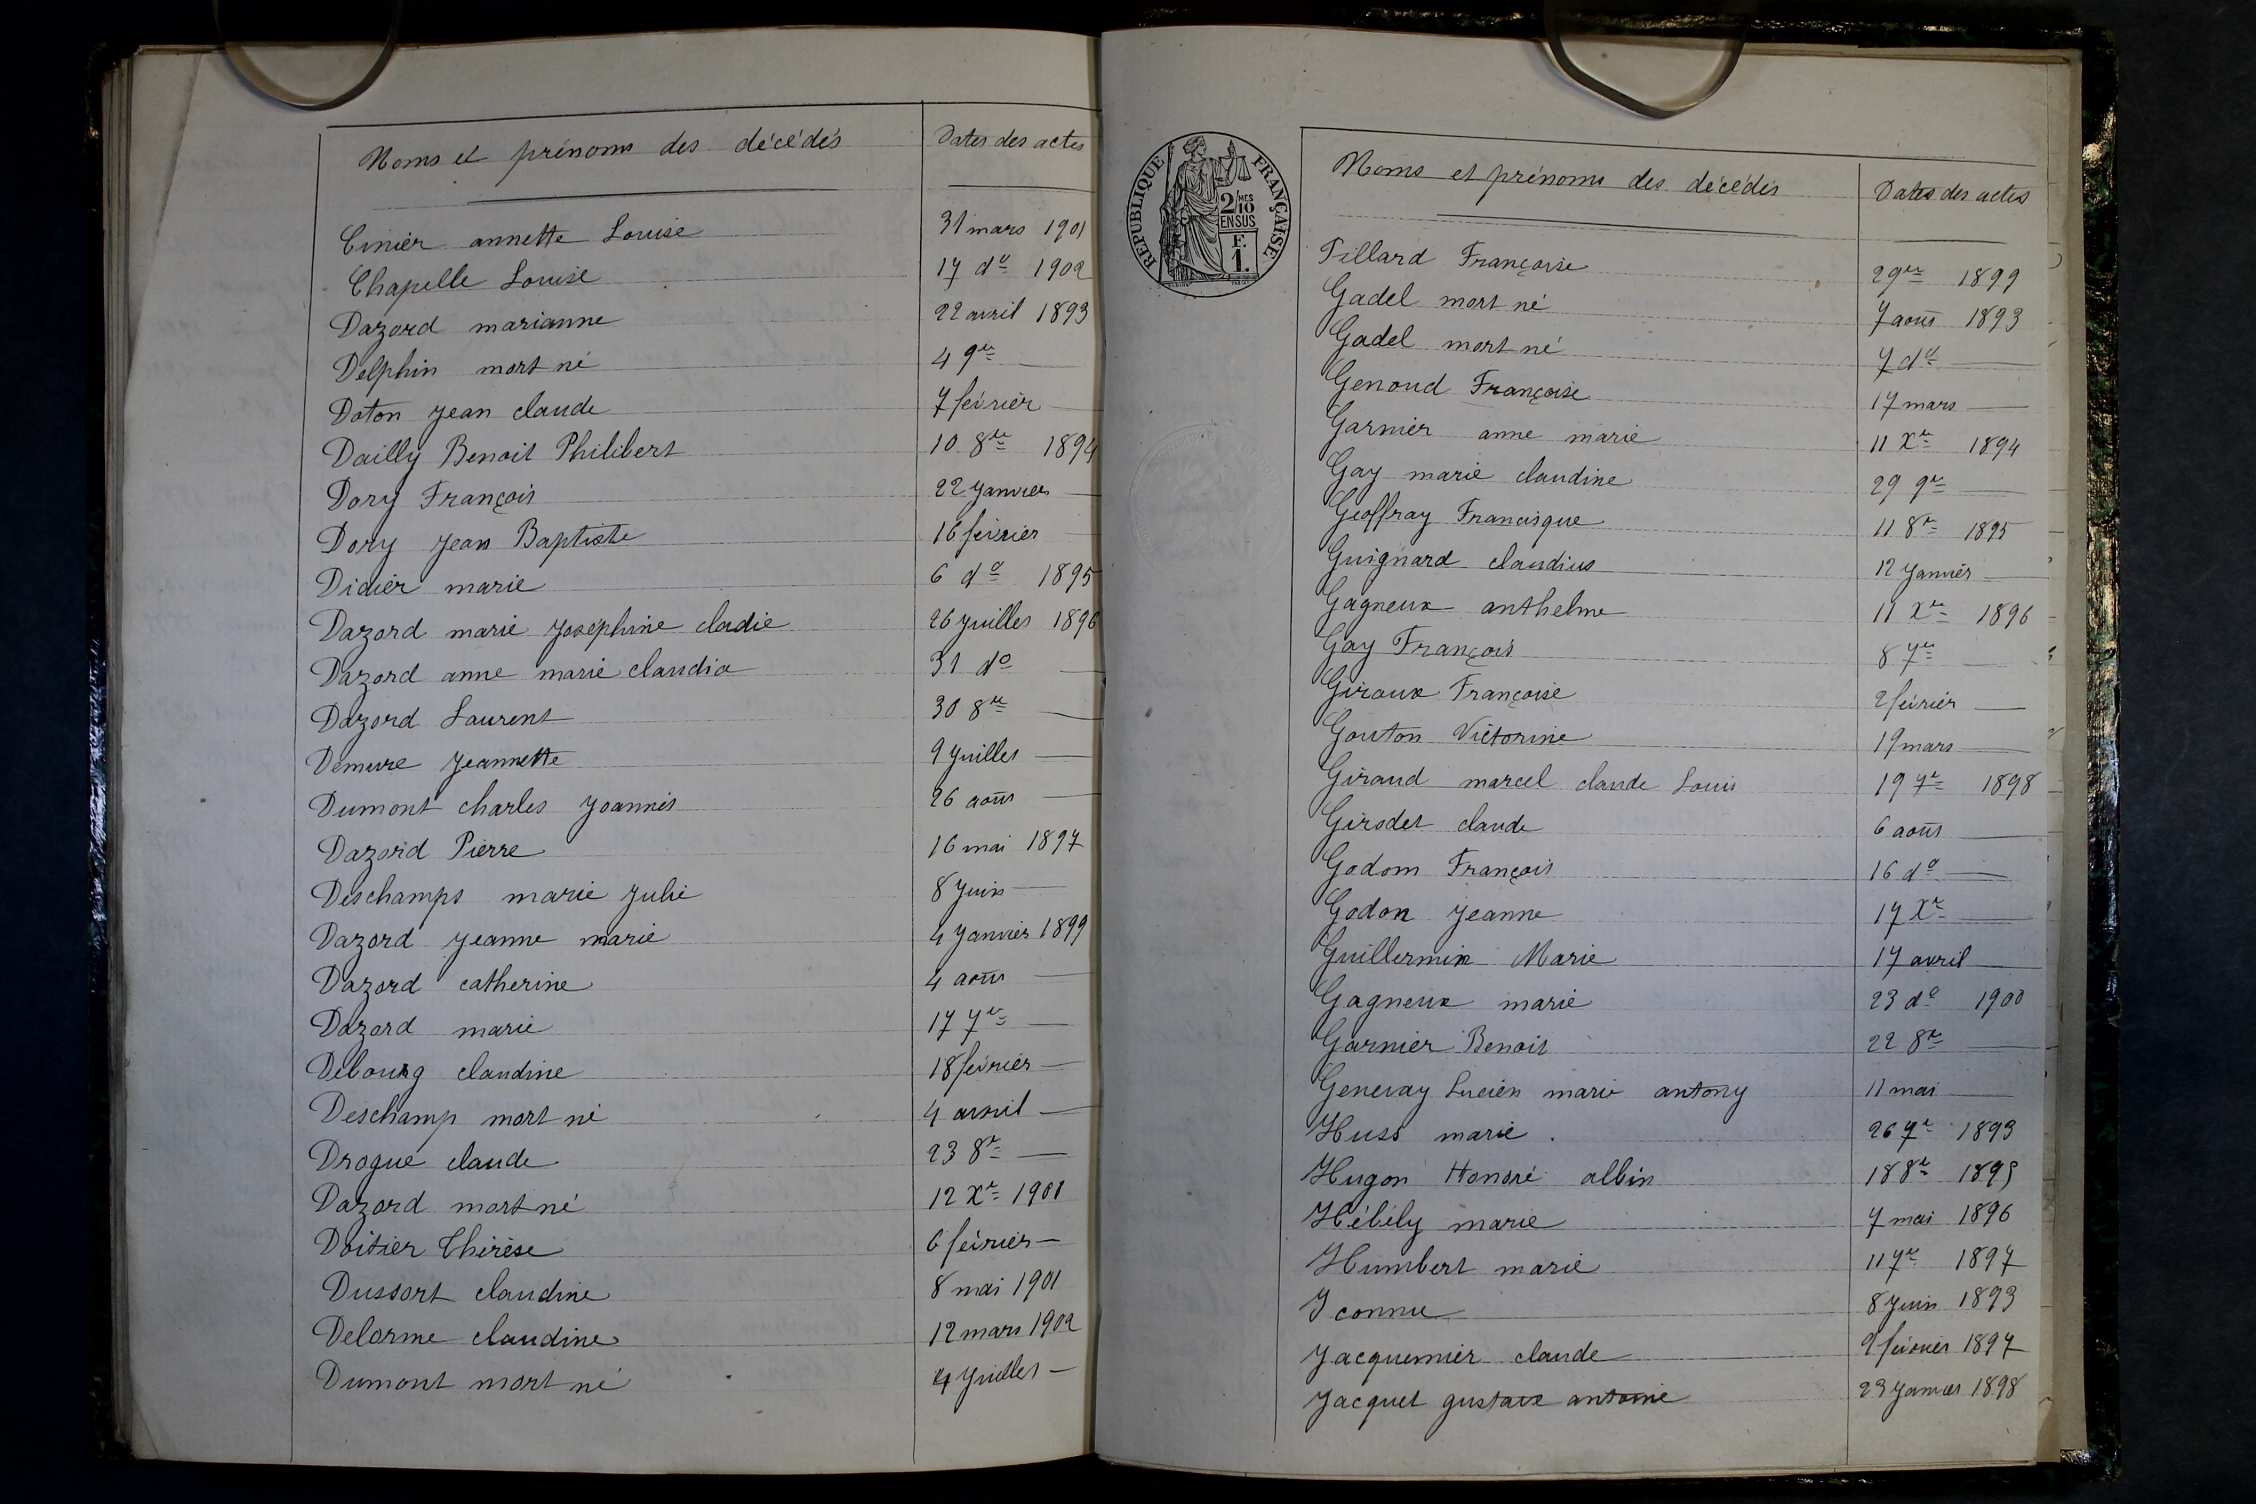 Noms et prénoms des décédés Dates des actes
Cinier annette Louise 31 mars 1901
Chapelle Louise 17 do 1902
Dazord marianne 22 avril 1893
Delphin mort né 4 9re —
Daton Jean claude 7 février —
Dailly Benoit Philibert 10 8re 1894
Dory François 22 Janvier —
Dory Jean Baptiste 16 février
Didier marie 6 do 1895
Dazord marie Joséphine cladie 26 Juillet 1896
Dazord anne marie claudia 31 do —
Dazord Laurent 30 8re —
Demure Jeannette 9 Juillet —
Dumont charles Joannès 26 août —
Dazord Pierre 16 mai 1897
Deschamps marie Julie 8 Juin —
Dazord Jeanne marie 4 Janvier 1899
Dazord catherine 4 août —
Dazord marie 17 7re —
Debourg claudine 18 février —
Deschamp mort né 4 avril —
Drogue claude 23 8re —
Dazord mort né 12 Xre 1900
Doitier Thérèse 6 février —
Dussort claudine 8 mai 1901
Delorme claudine 12 mars 1902
Dumont mort né 4 Juillet —
RÉPUBLIQUE FRANÇAISE
2/10 MES
EN SUS
F.
1.
Noms et prénoms des décédés Dates des actes
Fillard Françoise 29re 1899
Gadel mort né 7 août 1893
Gadel mort né 7 do —
Genoud Françoise 17 mars —
Garnier anne marie 11 Xre 1894
Gay marie claudine 29 9re —
Geoffray Francisque 11 8re 1895
Guignard claudius 12 Janvier —
Gagneux anthelme 11 Xre 1896
Gay François 8 7re —
Giroux Françoise 2 février —
Gouton Victorine 19 mars —
Giraud marcel claude Louis 19 7re 1898
Girodet claude 6 août —
Godom François 16 do —
Godon Jeanne 17 Xre —
Guillermin Marie 17 avril —
Gagneux marie 23 do 1900
Garnier Benoit 22 8re —
Genevay Lucien marie antony 11 mai —
Huss marie 26 7re 1893
Hugon Honoré albin 18 8re 1895
Hébély marie 7 mai 1896
Humbert marie 11 7re 1897
Iconnu 8 Juin 1893
Jacquemier claude 2 février 1897
Jacquet gustave antoine 23 Janvier 1898